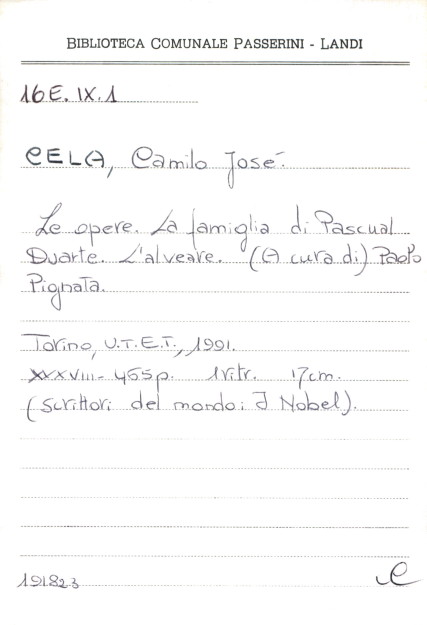 BIBLIOTECA COMUNALE PASSERINI - LANDI
16E.IX.1
CELA, Camilo José.
Le opere. La famiglia di Pascual
Duarte. L'alveare. (A cura di) Paolo
Pignata.
Torino, U.T.E.T., 1991.
XXXVIII-455p. 1ritr. 17cm.
(Scrittori del mondo: I Nobel).
191823